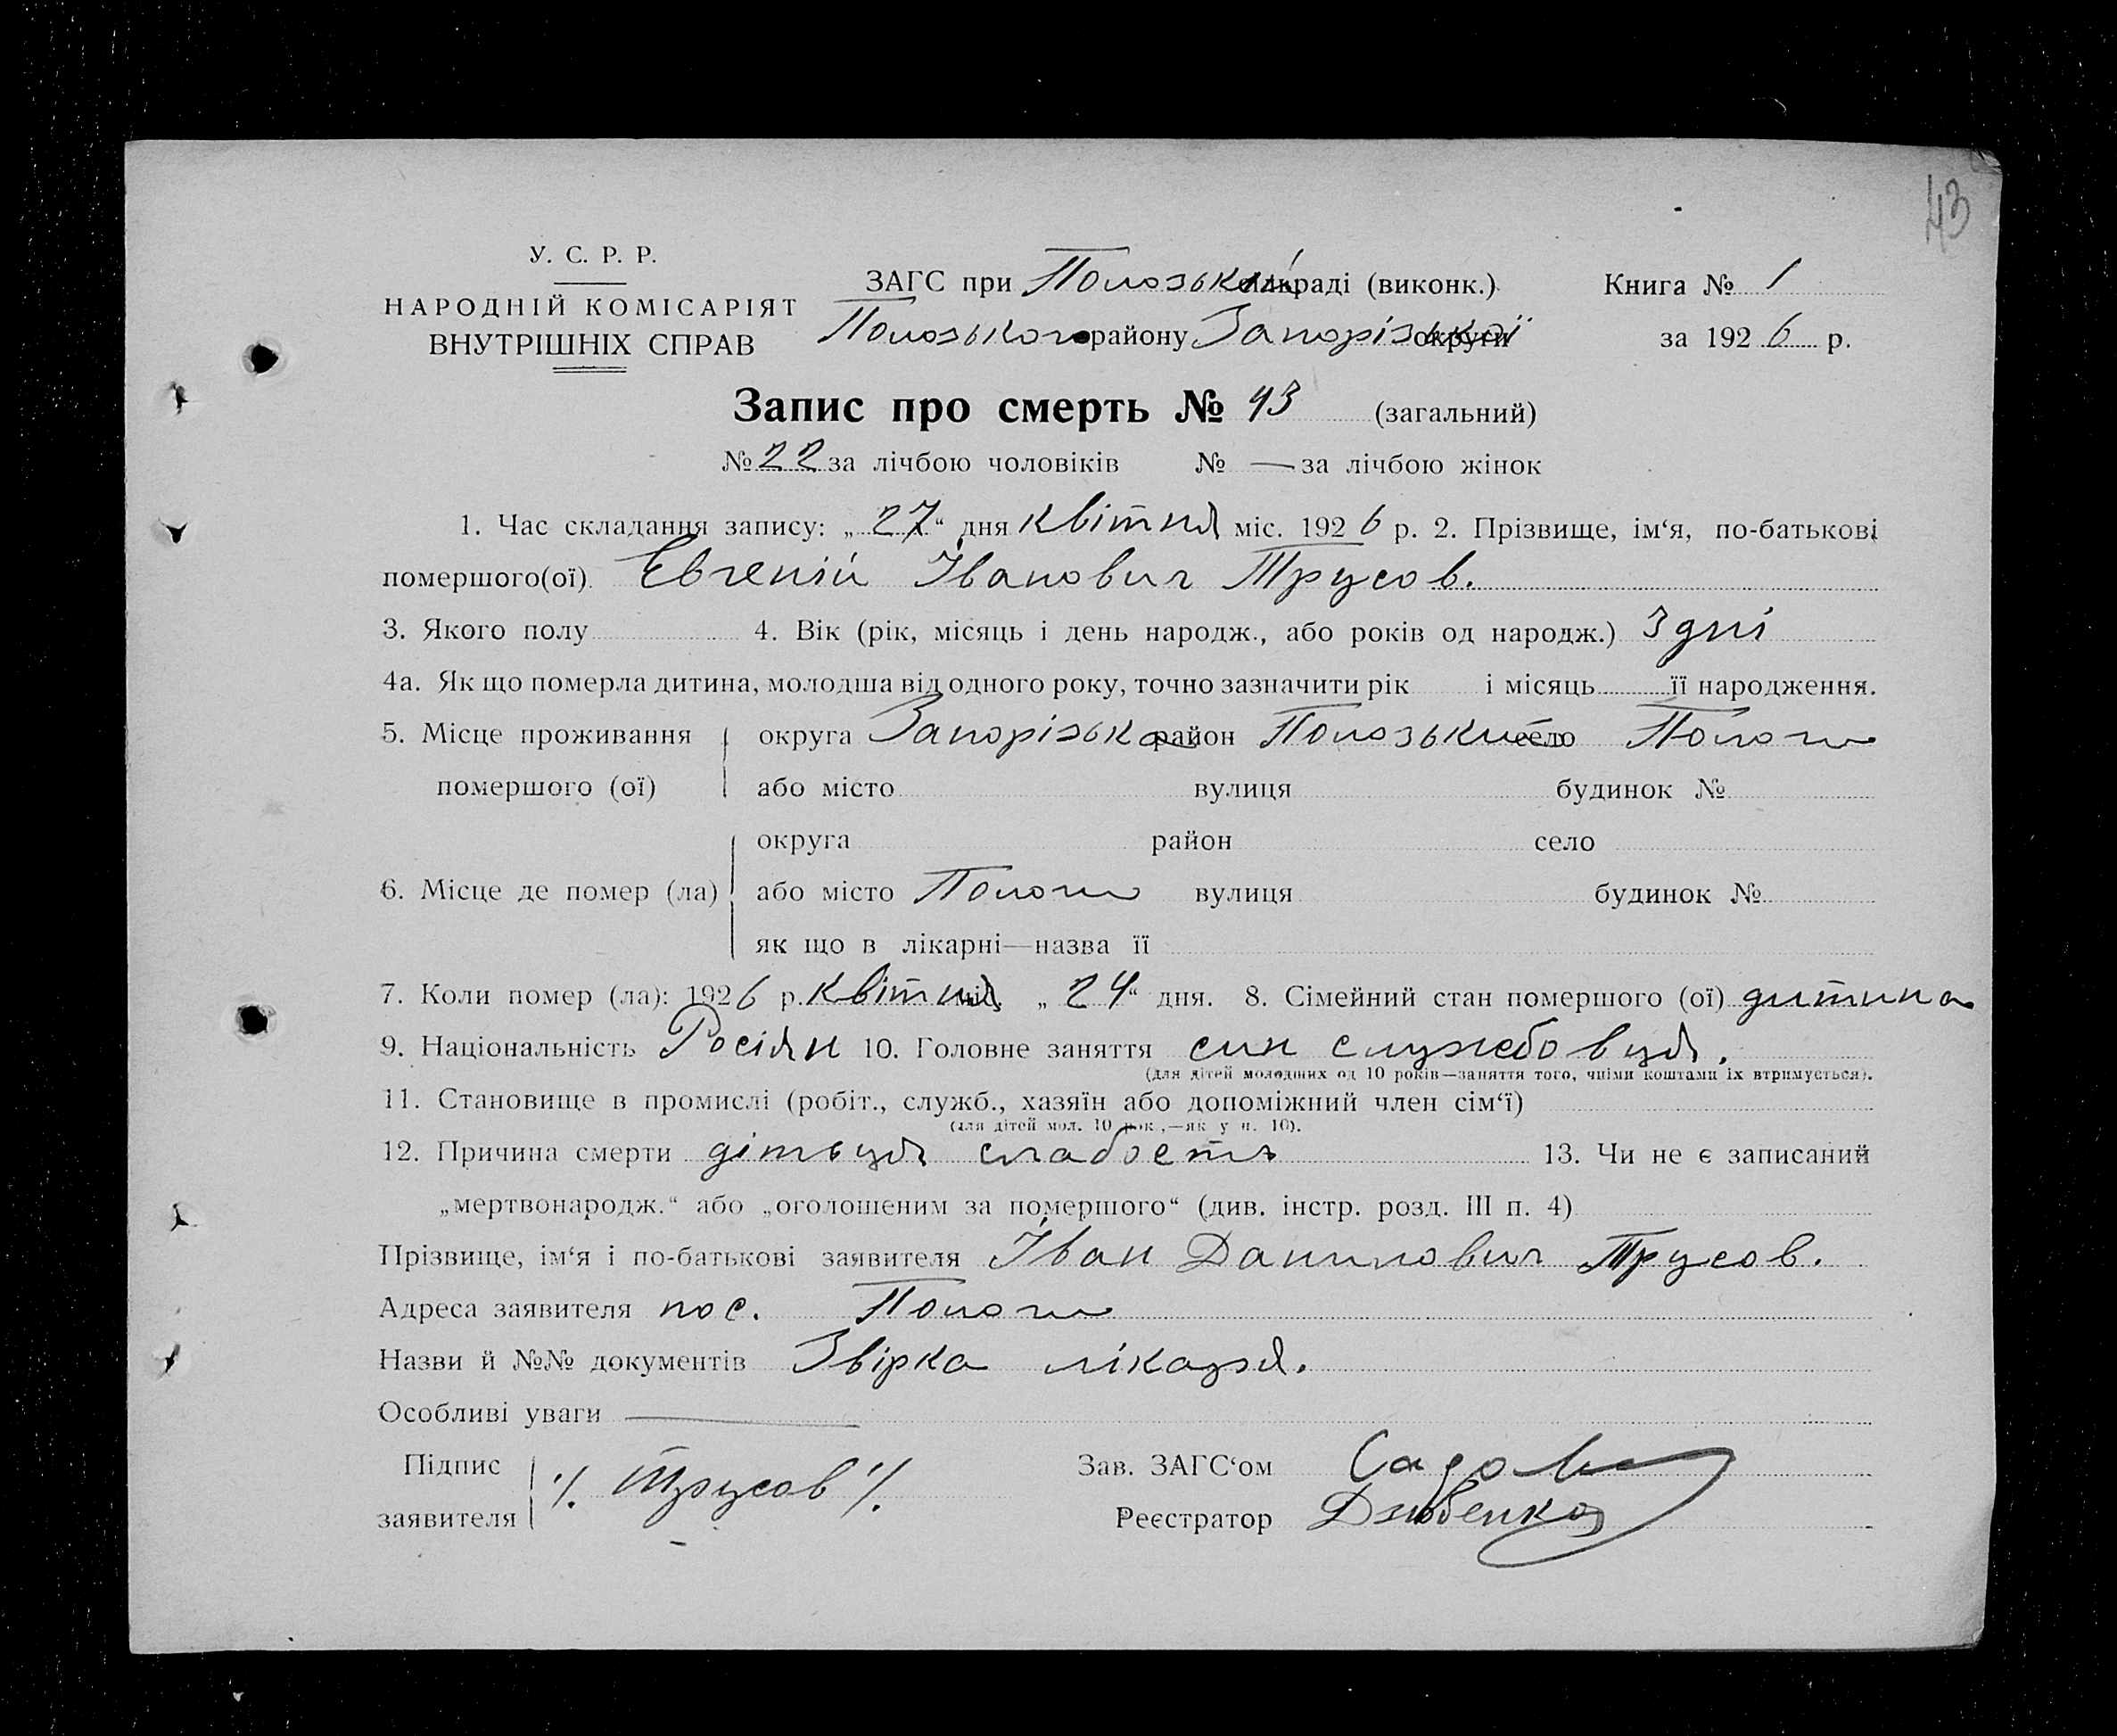 43
У. С. Р. Р.
НАРОДНІЙ КОМІСАРІЯТ
ВНУТРІШНІХ СПРАВ
ЗАГС при Полозькій раді (виконк.)
Полозького району Запорізької округи
Книга № 1
за 1926 р.
Запис про смерть № 43 (загальний)
№ 22 за лічбою чоловіків № — за лічбою жінок
1. Час складання запису: „27“ дня квітня міс. 1926 р. 2. Прізвище, ім‘я, по-батькові
помершого(ої) Евгеній Іванович Трусов.
3. Якого полу 4. Вік (рік, місяць і день народж., або років од народж.) 3 дні
4а. Як що померла дитина, молодша від одного року, точно зазначити рік і місяць її народження.
5. Місце проживання округа Запорізька район Полозький село Пологи
помершого (ої) або місто вулиця будинок №
округа район село
6. Місце де помер (ла) або місто Пологи вулиця будинок №
як що в лікарні—назва її
7. Коли помер (ла): 1926 р. квітня міс. „24“ дня. 8. Сімейний стан помершого (ої) дитина
9. Національність Росіян 10. Головне заняття син службовця.
(для дітей молодших од 10 років—заняття того, чиїми коштами їх втримується).
11. Становище в промислі (робіт., служб., хазяїн або допоміжний член сім‘ї)
(для дітей мол. 10 рок.,—як у п. 10).
12. Причина смерти дітьця слабость 13. Чи не є записаний
„мертвонародж.“ або „оголошеним за помершого“ (див. інстр. розд. III п. 4)
Прізвище, ім‘я і по-батькові заявителя Іван Данилович Трусов.
Адреса заявителя пос. Пологи
Назви й №№ документів Звірка лікаря.
Особливі уваги —
Підпис
заявителя /. Трусов /.
Зав. ЗАГС‘ом
Реєстратор Дзюбенко